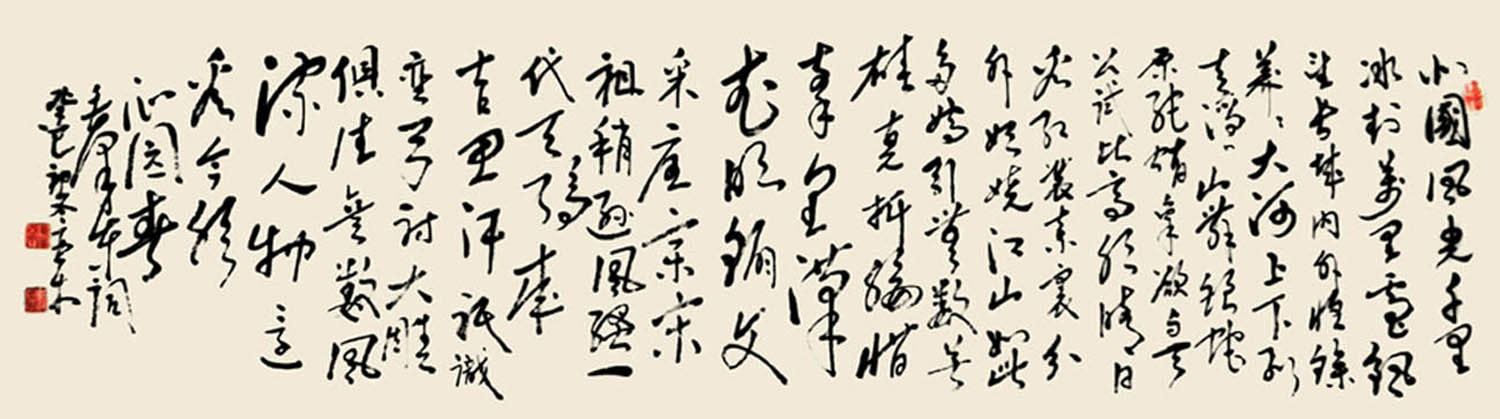 北國風光千里
冰封萬里雪飄
望長城内外惟餘
莽〻大河上下頓
失滔〻山舞銀蛇
原馳蠟象欲與天
公試比高須晴日
看紅裝素裹分
外妖嬈江山如此
多嬌引無數英
雄竞折腰惜
秦皇漢
武略輸文
采唐宗宋
祖稍遜風騷一
代天驕成
吉思汗祇識
弯弓射大雕
俱往矣數風
流人物还
看今朝
沁园春
毛泽东詞
癸巳初冬